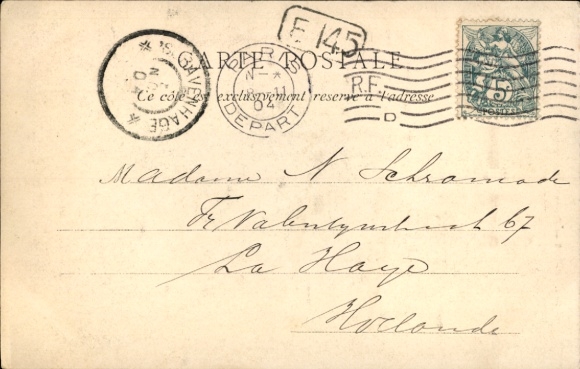 E 145
CARTE POSTALE
Ce côté est exclusivement réservé à l'adresse
'S GRAVENHAGE
PARIS
04
DEPART
R.F.
D
5
POSTES
Madame N Schramade
Fr Valentynstraat 67
La Haye
Hollande